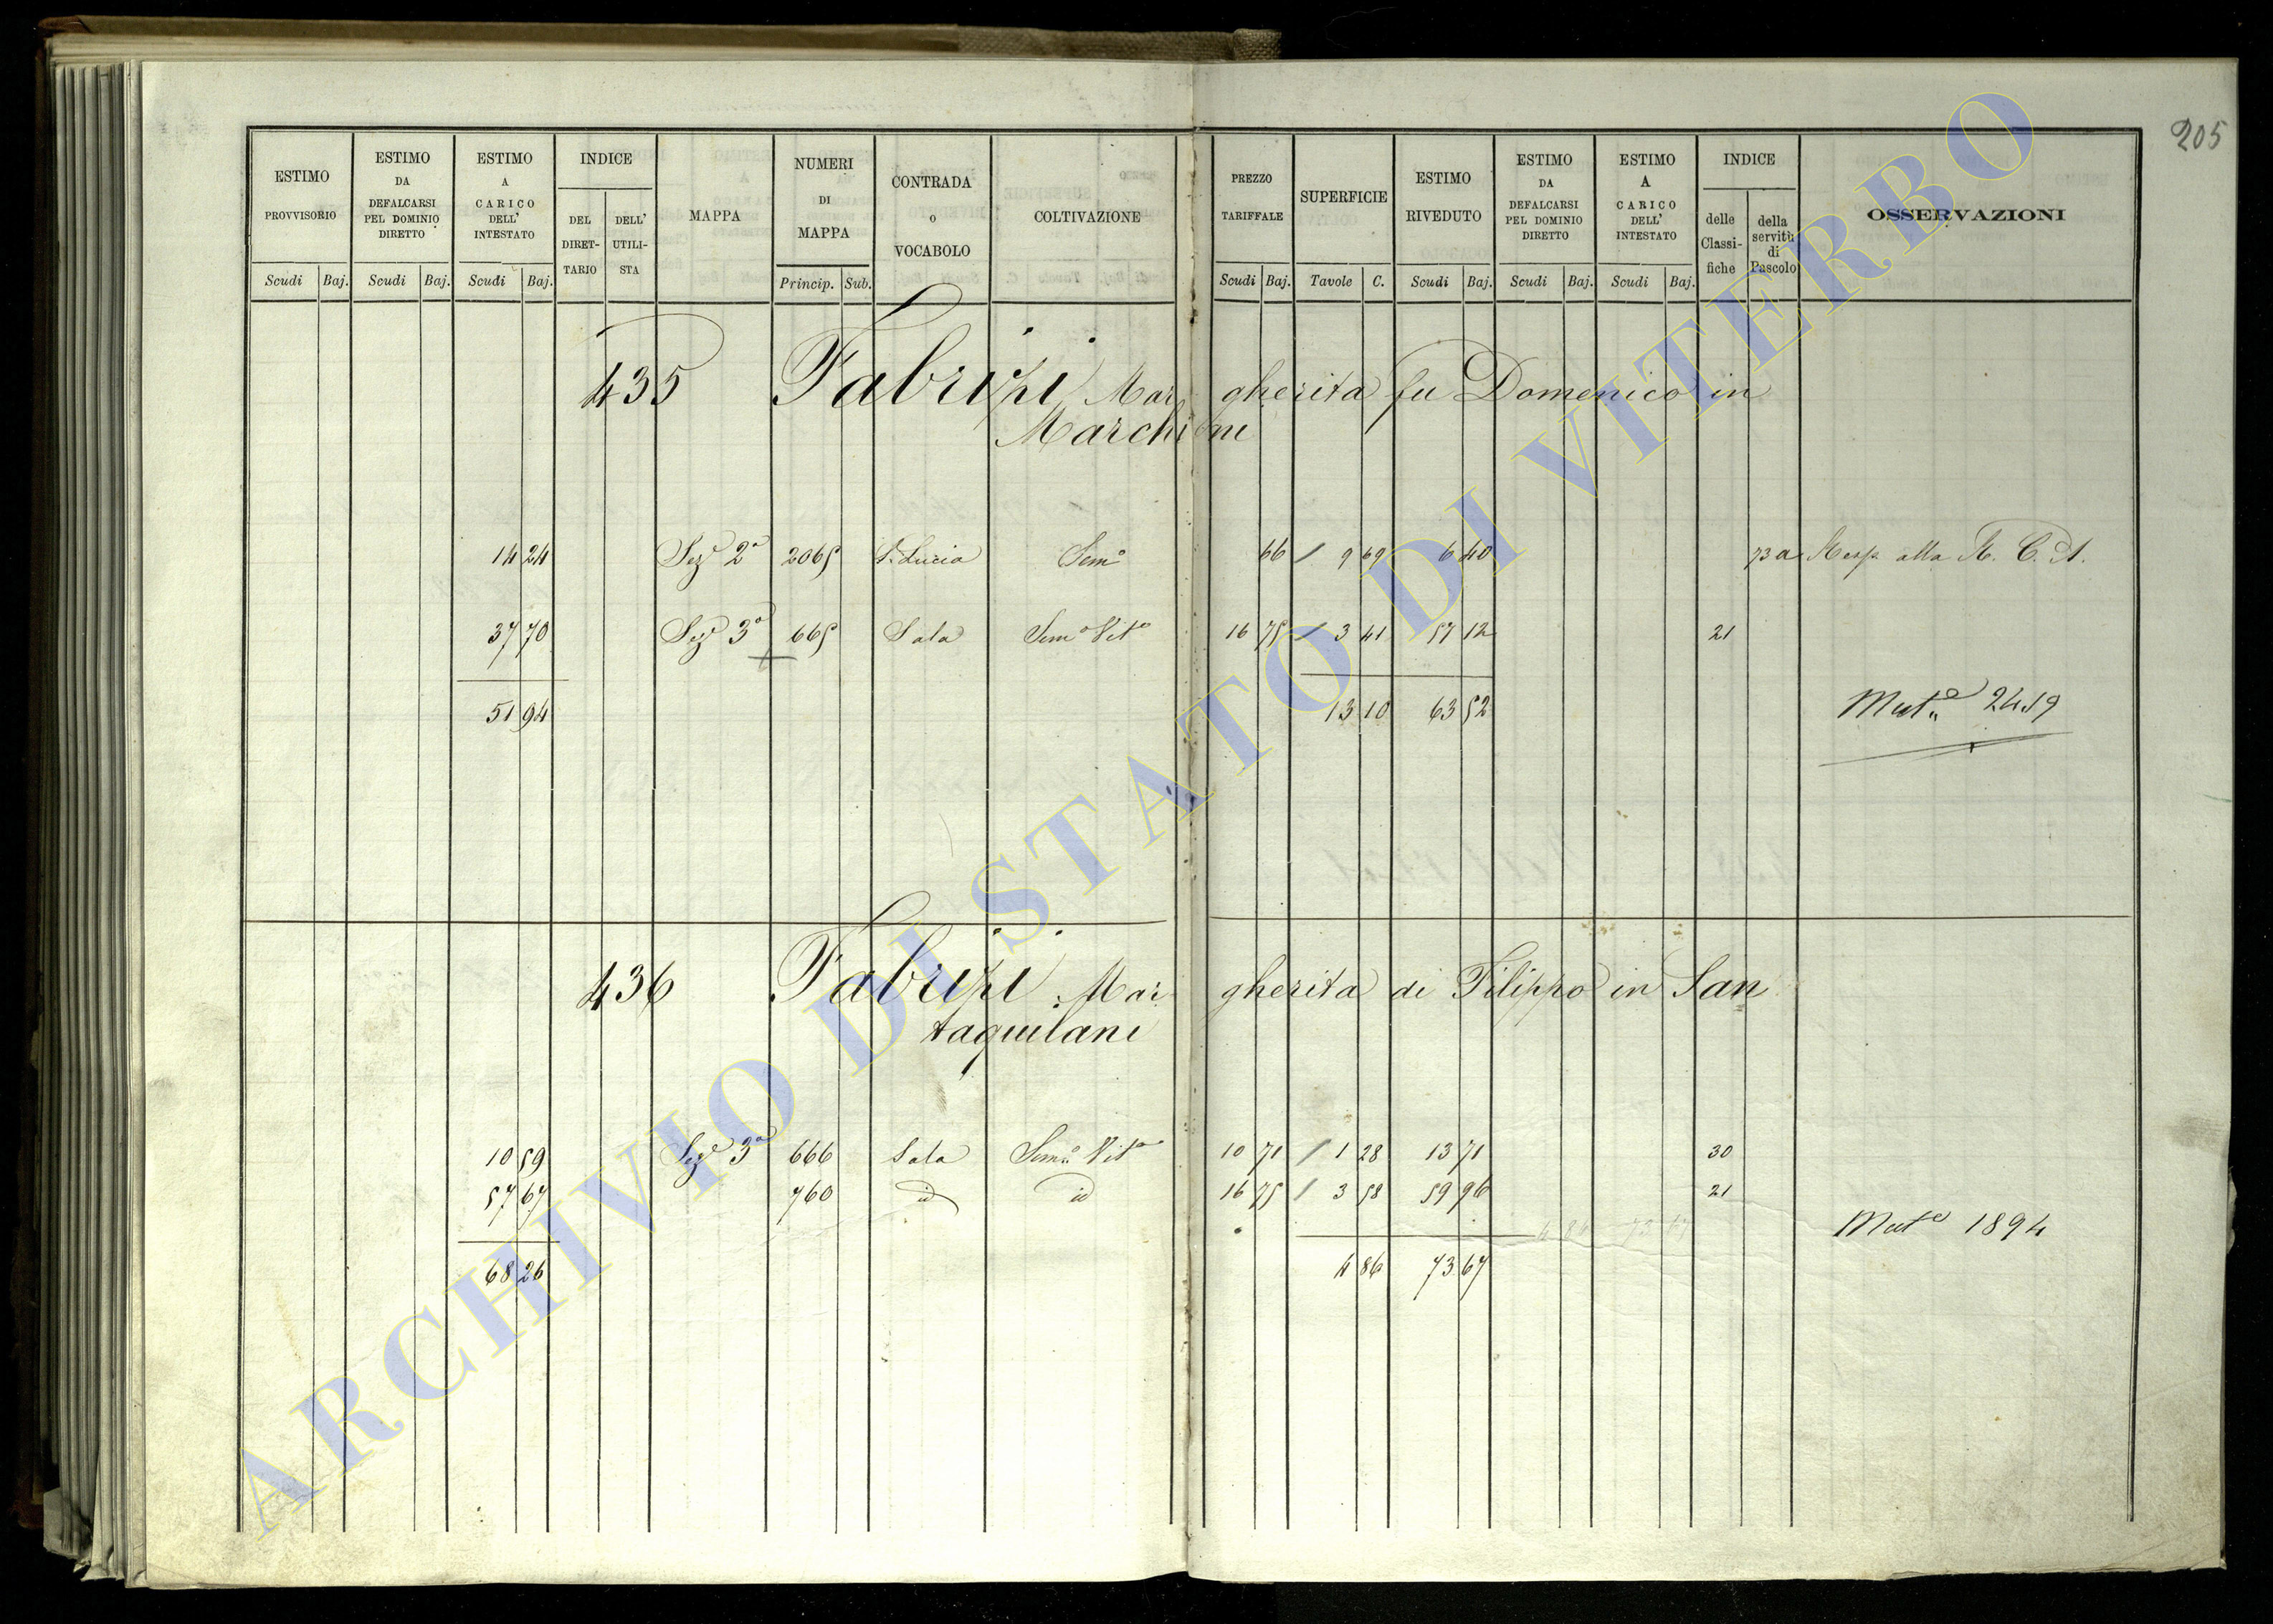 205
ESTIMO PROVVISORIO Scudi Baj.
ESTIMO DA DEFALCARSI PEL DOMINIO DIRETTO Scudi Baj.
ESTIMO A CARICO DELL' INTESTATO Scudi Baj.
INDICE DEL DIRETTARIO DELL' UTILISTA
MAPPA
NUMERI DI MAPPA Princip. Sub.
CONTRADA O VOCABOLO
COLTIVAZIONE
PREZZO TARIFFALE Scudi Baj.
SUPERFICIE Tavole C.
ESTIMO RIVEDUTO Scudi Baj.
ESTIMO DA DEFALCARSI PEL DOMINIO DIRETTO Scudi Baj.
ESTIMO A CARICO DELL' INTESTATO Scudi Baj.
INDICE delle Classifiche della servitù di Pascolo
OSSERVAZIONI
435 Fabrizi Margherita fu Domenico in
Marchioni
14 24 Sez.e 2a 2065 S. Lucia Sem.o 66 / 9 69 6 40 73 a Resp. alla R. C. A.
37 70 Sez.e 3a 665 Sala Sem.o Vit.o 16 75 / 3 41 57 12 21
51 94 13 10 63 52 Mut.e 2459
436 Fabrizi Margherita di Filippo in San
taquilani
10 59 Sez.e 3a 666 Sala Sem.o Vit.o 10 71 / 1 28 13 71 30
57 67 760 id id 16 75 / 3 58 59 96 21
4 86 73 67 Mut.e 1894
68 26 4 86 73 67
ARCHIVIO DI STATO DI VITERBO